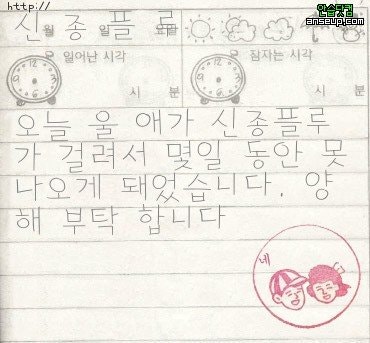 http://
안습닷컴
anseup.com
신 종 플 루
월 일
일어난 시각 잠자는 시각
시 분 시 분
오늘 울 애가 신종플루
가 걸려서 몇일 동안 못
나오게 돼었습니다. 양
해 부탁 합니다
네